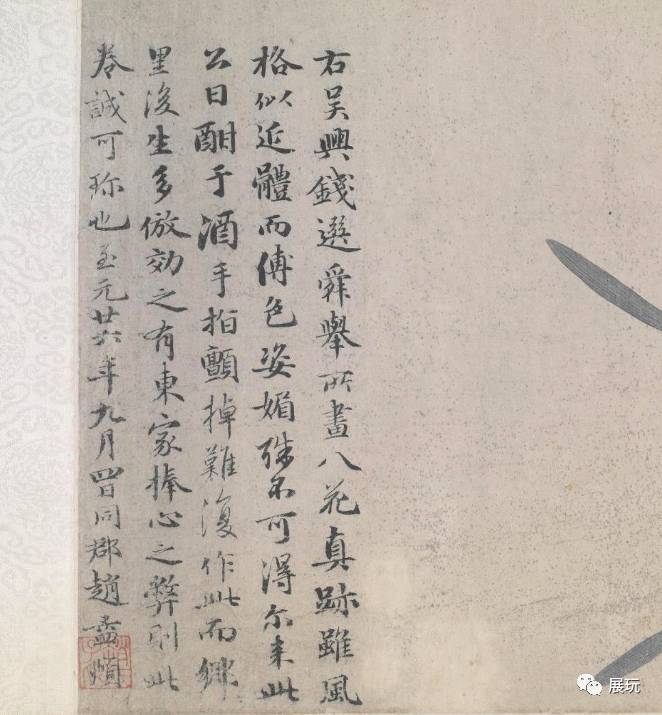 右吳興錢選舜舉所畫八花真跡雖風
格似近體而傅色姿媚殊不可得尔来此
公日酣于酒手指顫掉難復作此而鄉
里後生多倣効之有東家捧心之弊則此
卷誠可珎也至元廿六年九月四日同郡趙孟頫
展玩